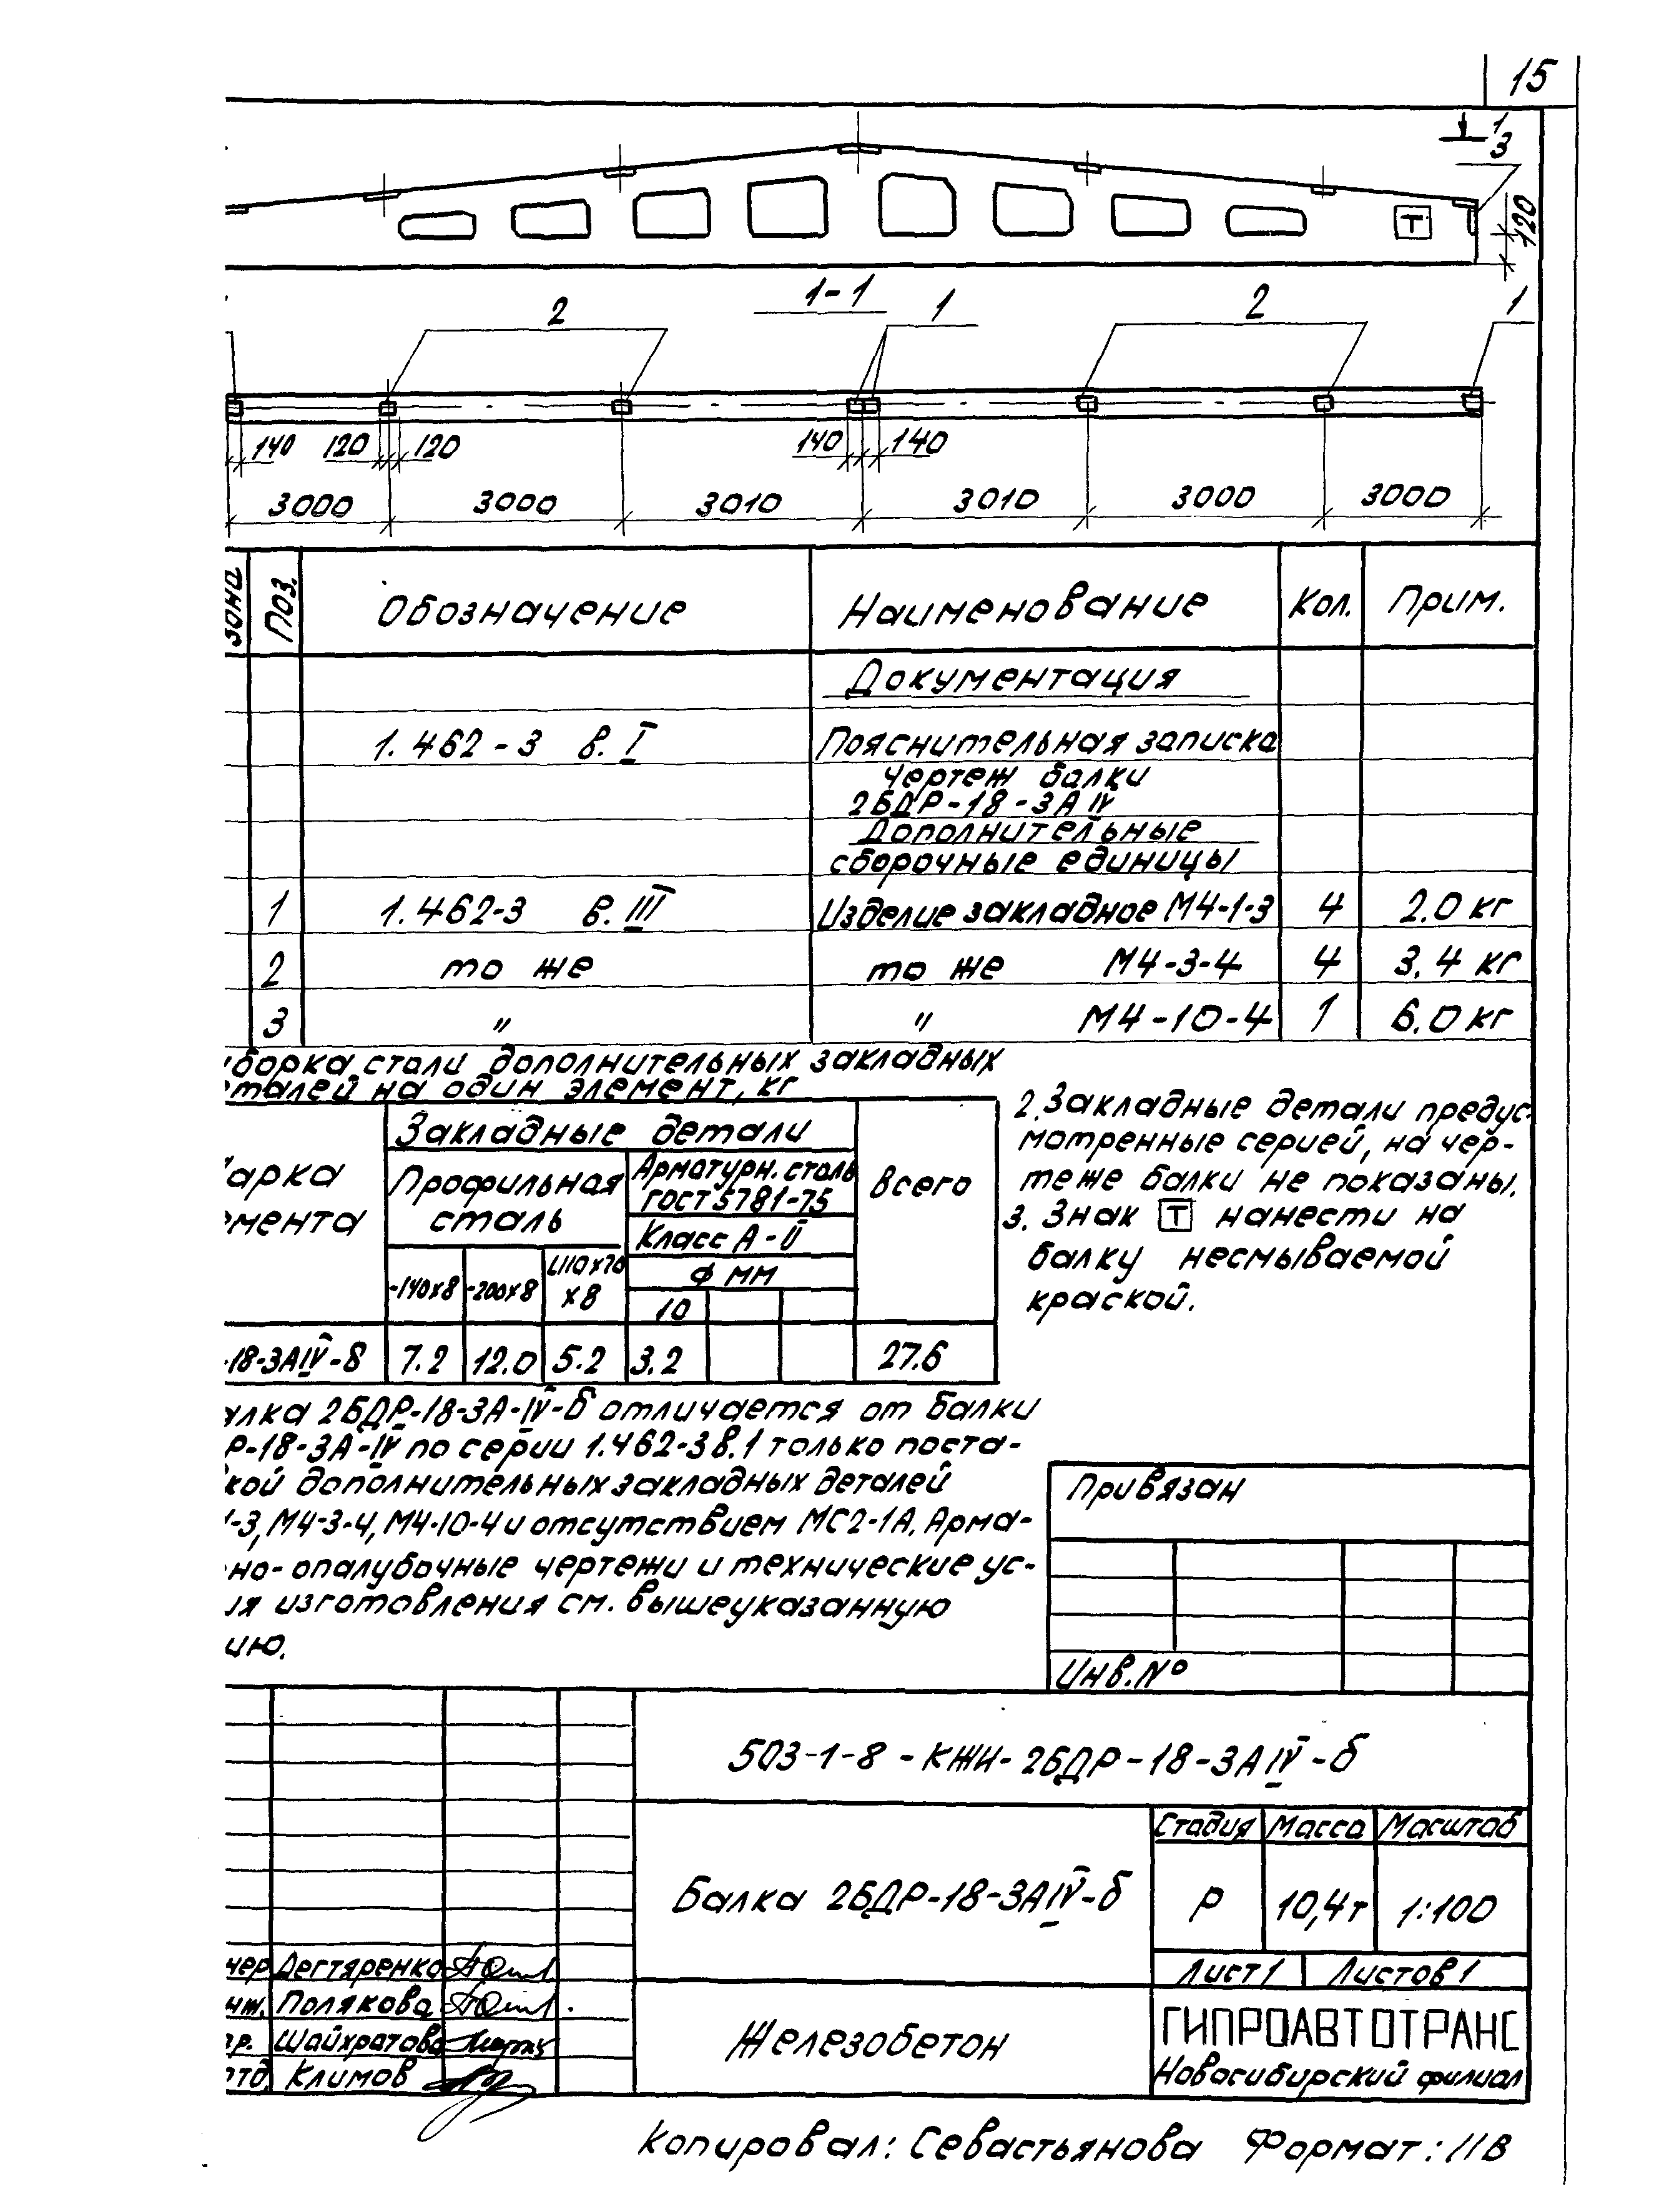 15
1
3
120
Т
1-1
2 1 2 1
140 120 120 140 140
3000 3000 3010 3010 3000 3000
зона Поз. Обозначение Наименование Кол. Прим.
Документация
1.462-3 в. I Пояснительная записка
чертеж балки
2БДР-18-3АIV
Дополнительные
сборочные единицы
1 1.462-3 в. III Изделие закладное М4-1-3 4 2.0 кг
2 то же то же М4-3-4 4 3.4 кг
3 " " М4-10-4 1 6.0 кг
ыборка стали дополнительных закладных
еталей на один элемент, кг
арка
емента
Закладные детали
Профильная
сталь
Арматурн. сталь
ГОСТ 5781-75
Класс А-II
Ф мм
Всего
-140х8 -200х8 L110х70
х8
10
-18-3АIV-б 7.2 12.0 5.2 3.2 27.6
2. Закладные детали предус-
мотренные серией, на чер-
теже балки не показаны.
3. Знак Т нанести на
балку несмываемой
краской.
алка 2БДР-18-3А-IV-б отличается от балки
Р-18-3А-IV по серии 1.462-3 в.1 только поста-
кой дополнительных закладных деталей
1-3, М4-3-4, М4-10-4 и отсутствием МС2-1А. Арма-
но-опалубочные чертежи и технические ус-
ия изготовления см. вышеуказанную
ию.
Привязан
Инв.№
503-1-8-КЖИ-2БДР-18-3АIV-б
Балка 2БДР-18-3АIV-б
Стадия Масса Масштаб
Р 10,4т 1:100
Лист 1 Листов 1
чер Дегтяренко
нж. Полякова
р. Шайхратова
отд. Климов
Железобетон
ГИПРОАВТОТРАНС
Новосибирский филиал
Копировал: Севастьянова Формат: 11В